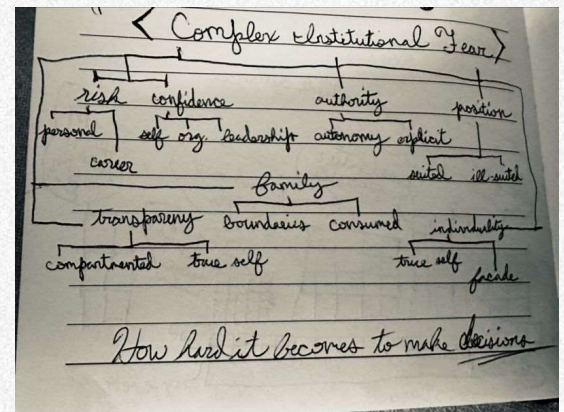 < Complex Institutional Fear >
risk confidence authority position
personal self org. leadership autonomy explicit
career suited ill-suited
family
transparency boundaries consumed individuality
compartmented true self true self
facade
How hard it becomes to make decisions